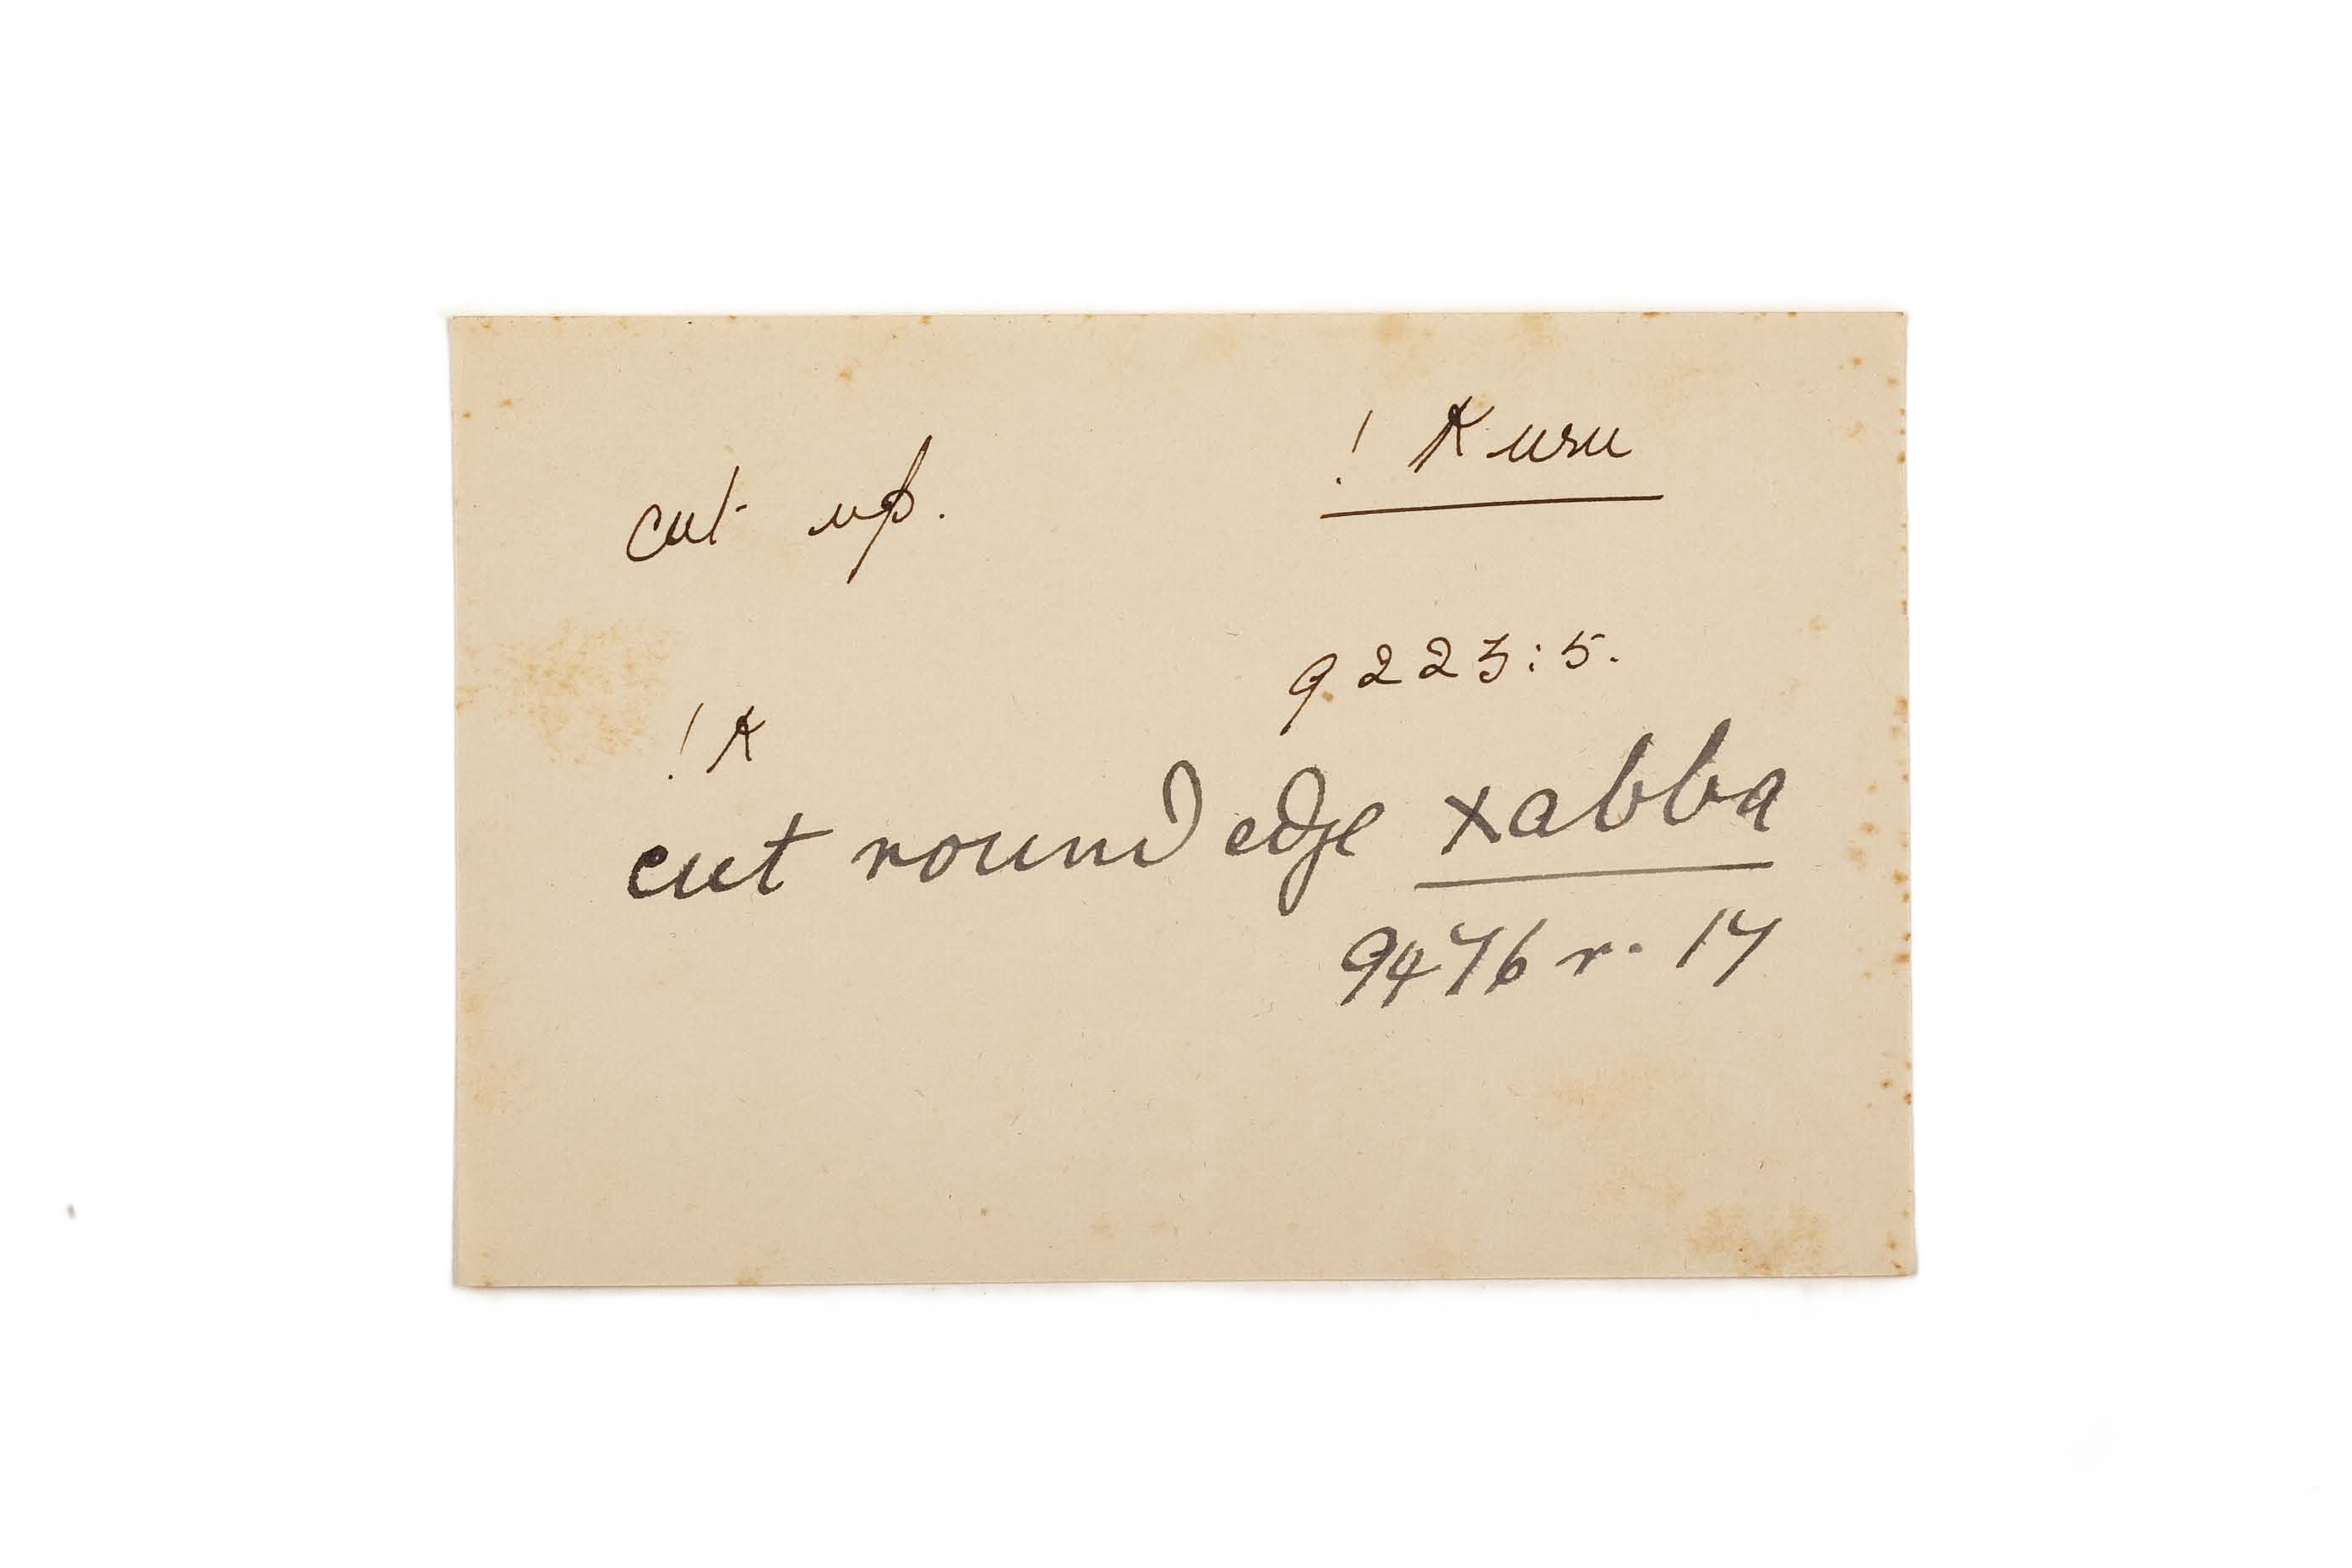 ! kuru
cut up.
9223:5.
! k
cut round edge xabba
9476 r. 17